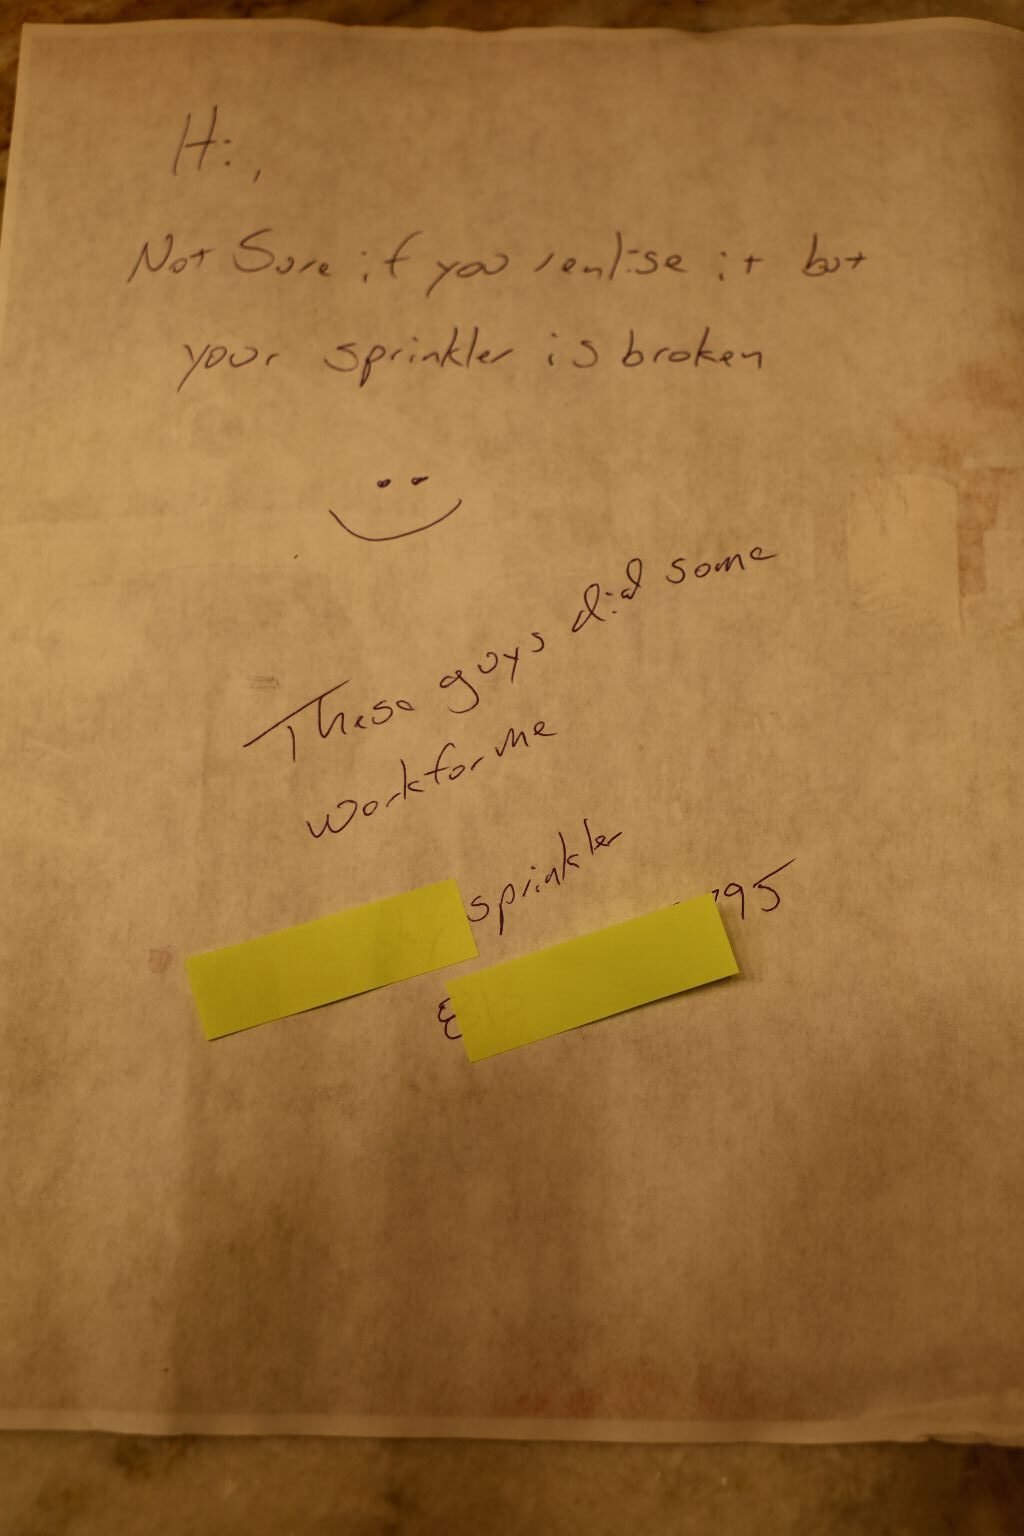 Hi,
Not Sure if you realise it but
your sprinkler is broken
These guys did some
work for me
sprinkler
795